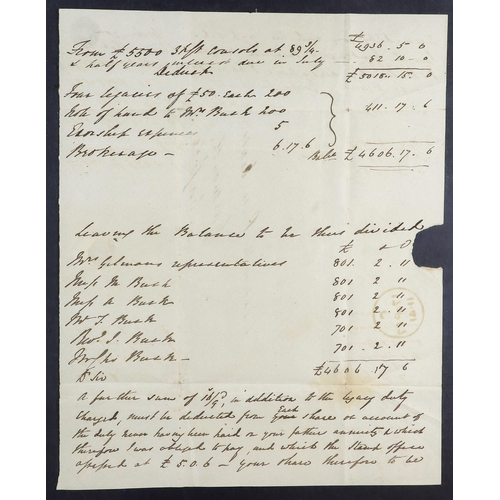 From £5500 3 p/ct Consols at 89 3/4 - £4936. 5. 0
& half years interest due in July - 82. 10. 0
Deduct £5018. 15. 0
Four legacies of £50. Each 200
Note of hand to Wm Bush 200 411. 17. 6
Exorship expences 5
Brokerage - 6. 17. 6 Bale £4606. 17. 6
Leaving the Balance to be thus divided
£ s D
Mrs Gilmans representatives 801. 2 "
Miss M Bush 801 2 "
Miss A Bush 801 2 "
Mr T. Bush 801 2 "
Revd J. Bush 701 - 2 "
Bush - 701 - 2. "
£4606 17 6
Dr Sir
A further sum of in addition to the legacy duty
charged, must be deducted from Each share on account of
the duty never having been paid on your fathers annuity & which
therefore I was obliged to pay, and which the Stamp office
assessed at £5.0.6 - your share therefore to be